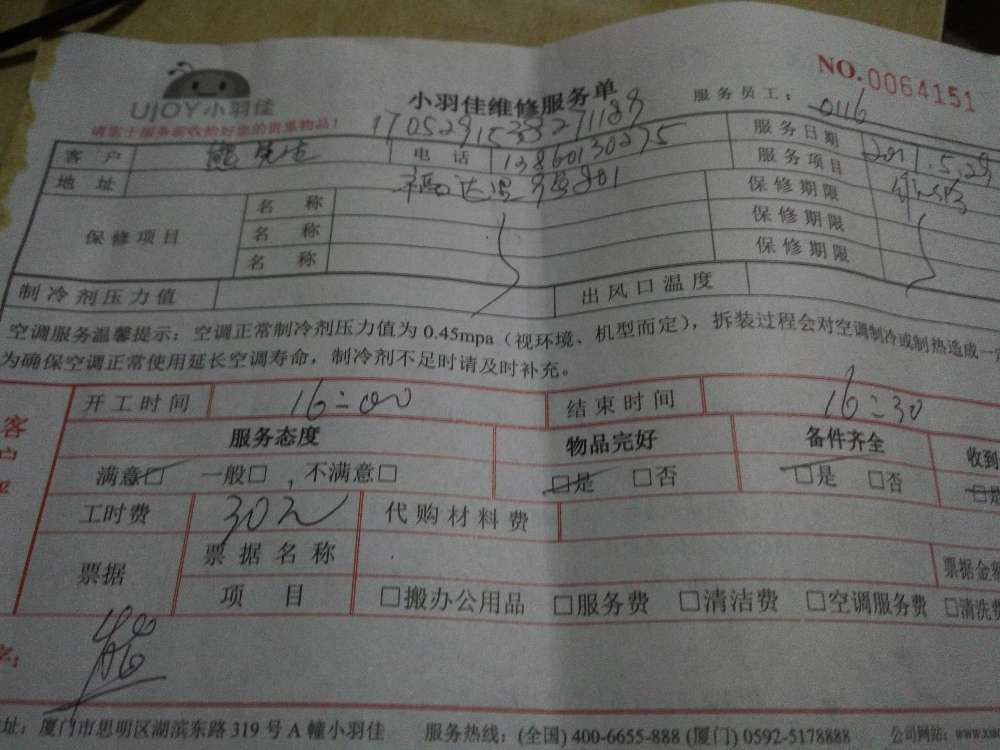 UJOY小羽佳
小羽佳维修服务单
NO.0064151
服务员工: 0116
请您于服务前收拾好您的贵重物品!
170529153327118
客户 熊先生 电话 13860130275 服务日期 5.29
地址 801 服务项目
保修项目 名称 保修期限
名称 保修期限
名称 保修期限
制冷剂压力值 出风口温度
空调服务温馨提示:空调正常制冷剂压力值为 0.45mpa(视环境、机型而定),拆装过程会对空调制冷或制热造成一
为确保空调正常使用延长空调寿命,制冷剂不足时请及时补充。
开工时间 16:00 结束时间 16:30
客户
服务态度 物品完好 备件齐全 收到
满意□ 一般□ , 不满意□ □是 □否 □是 □否 □是
工时费 30元 代购材料费
票据 票据名称 票据金额
项目 □搬办公用品 □服务费 □清洁费 □空调服务费 □清洗费
字: 熊
址:厦门市思明区湖滨东路 319 号 A 幢小羽佳 服务热线:(全国) 400-6655-888 (厦门) 0592-5178888 公司网站:www.xm